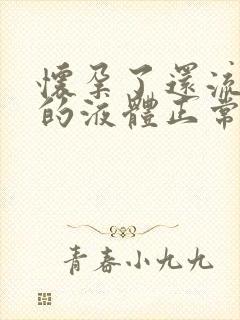 懷孕了還流
的液體正常
青春小九九